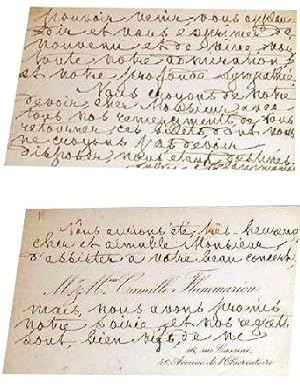 pouvoir venir vous applau-
dir et vous exprimer de
nouveau et de vive voix
toute notre admiration
et notre profonde sympathie
Nous croyons de notre
devoir, cher Monsieur, avec
tous nos remerciements de vous
retourner ces billets dont nous
ne croyons pas devoir
disposer, nous étant destinés
Nous aurions été très heureux
cher et aimable Monsieur
d'assister à votre beau concert,
Mr & Mme Camille Flammarion
mais, nous avons promis
notre soirée et nos regrets
sont bien vifs de ne
16, rue Cassini
40, Avenue de l'Observatoire